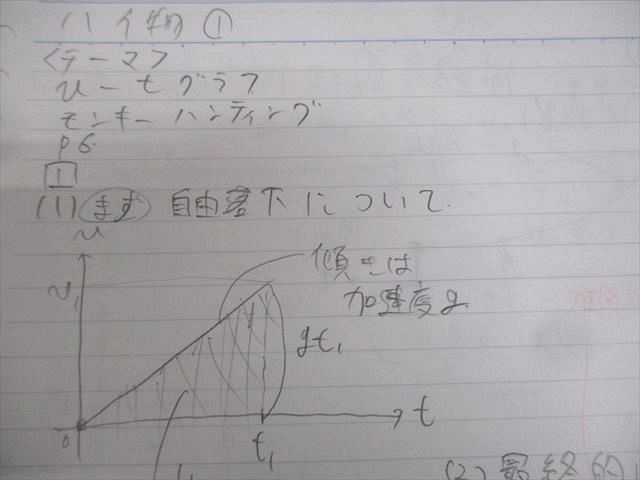 ハイ物①
<テーマ>
v-tグラフ
モンキーハンティング
P6
1
(1)まず 自由落下について
v
傾きは
加速度g
v₁
gt₁
t
0
t₁
h
(2)最終的に